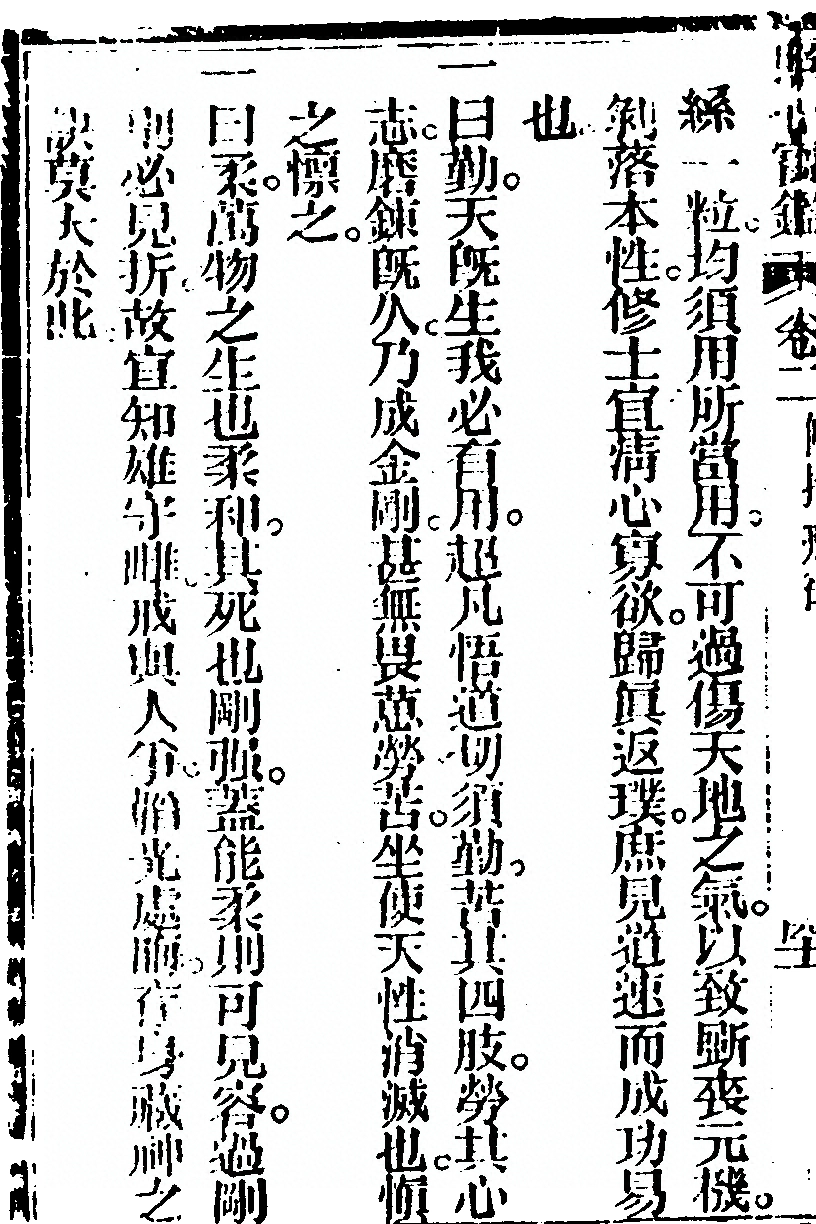 絲一粒。均須用所當用。不可過傷天地之氣。以致斲喪元機。
剝落本性。修士宜清心寡欲。歸眞返璞。庶見道速而成功易
也。
一曰勤。天旣生我必有用。超凡悟道切須勤。苦其四肢。勞其心
志。磨鍊旣久。乃成金剛。甚無畏葸勞苦。坐使天性消滅也。愼
之懍之。
一曰柔。萬物之生也柔和。其死也剛强。蓋能柔則可見容。過剛
則必見折。故宜知雄守雌。戒與人爭。韜光處晦。存身藏神之
訣莫大於此。
卷二